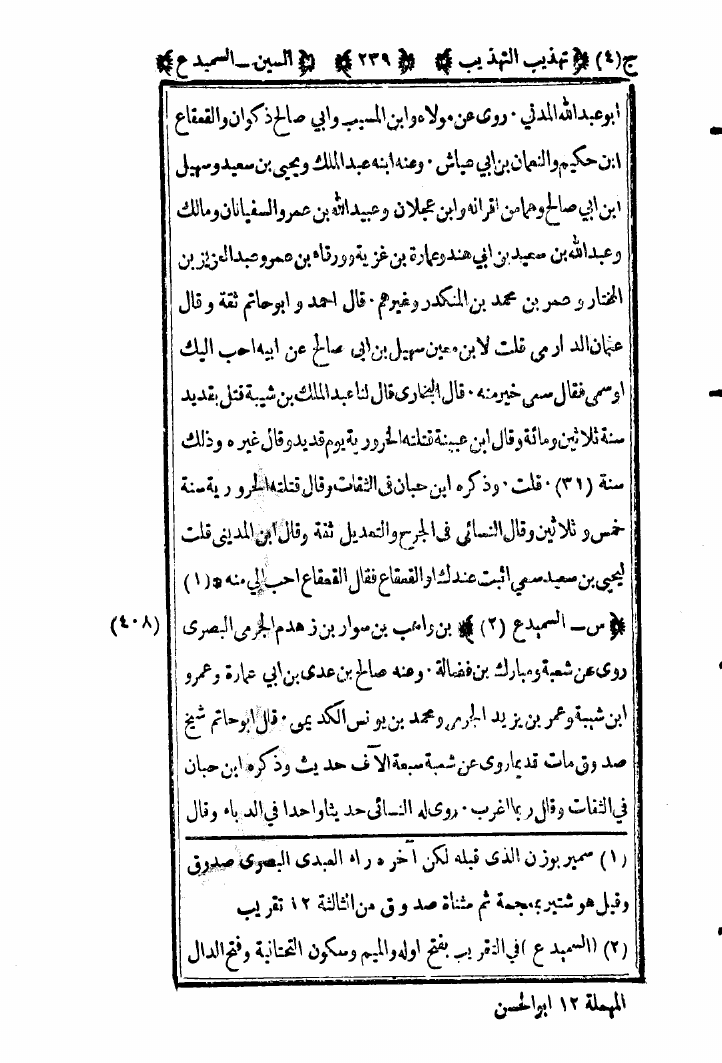 ج(٤) ﴿تهذيب التهذيب﴾ ﴿٢٣٩﴾ ﴿السين ـ السميدع﴾
ابو عبدالله المدني · روى عن مولاه وابن المسيب وابي صالح ذكوان والقعقاع
ابن حكيم والنعمان بن ابي عياش · وعنه ابنه عبدالملك ويحيى بن سعيد وسهيل
ابن ابي صالح وهما من اقرانه وابن عجلان وعبيدالله بن عمرو السفيانان ومالك
وعبدالله بن سعيد بن ابي هند وعمارة بن غزية وورقاء بن عمرو عبدالعزيز بن
المختار و عمر بن محمد بن المنكدر وغيرهم · قال احمد و ابو حاتم ثقة وقال
عثمان الدارمي قلت لابن معين سهيل بن ابى صالح عن ابيه احب اليك
او سمى فقال سمى خير منه · قال البخارى قال لنا عبدالملك بن شيبة قتل بقديد
سنة ثلاثين ومائة وقال ابن عيينة قتلته الحرورية يوم قديد وقال غيره وذلك
سنة (٣١) · قلت · وذكره ابن حبان فى الثقات وقال قتلته الحرورية سنة
خمس و ثلاثين وقال النسائي فى الجرح والتعديل ثقة وقال ابن المديني قلت
ليحيى بن سعيد سمي اثبت عندك او القعقاع فقال القعقاع احب الي منه * (١)
﴿س ـ السميدع (٢)﴾ بن راهب بن سوار بن زهدم الجرمي البصرى (٤٠٨)
روى عن شعبة ومبارك بن فضالة · وعنه صالح بن عدى بن ابي عمارة وعمرو
ابن شيبة وعمر بن يزيد الجرمى ومحمد بن يونس الكديمى · قال ابو حاتم شيخ
صدوق مات قديما روى عن شعبة سبعة الآف حديث وذكره ابن حبان
في الثقات وقال ربما اغرب · روى له النسائى حديثا واحدا في الدباء وقال
(١) سمير بوزن الذى قبله لكن آخره راء العبدى البصرى صدوق
وقيل هو شتير بمعجمة ثم مثناة صدوق من الثالثة ١٢ تقريب
(٢) (السميدع) في التقريب بفتح اوله والميم وسكون التحتانية وفتح الدال
المهملة ١٢ ابوالحسن